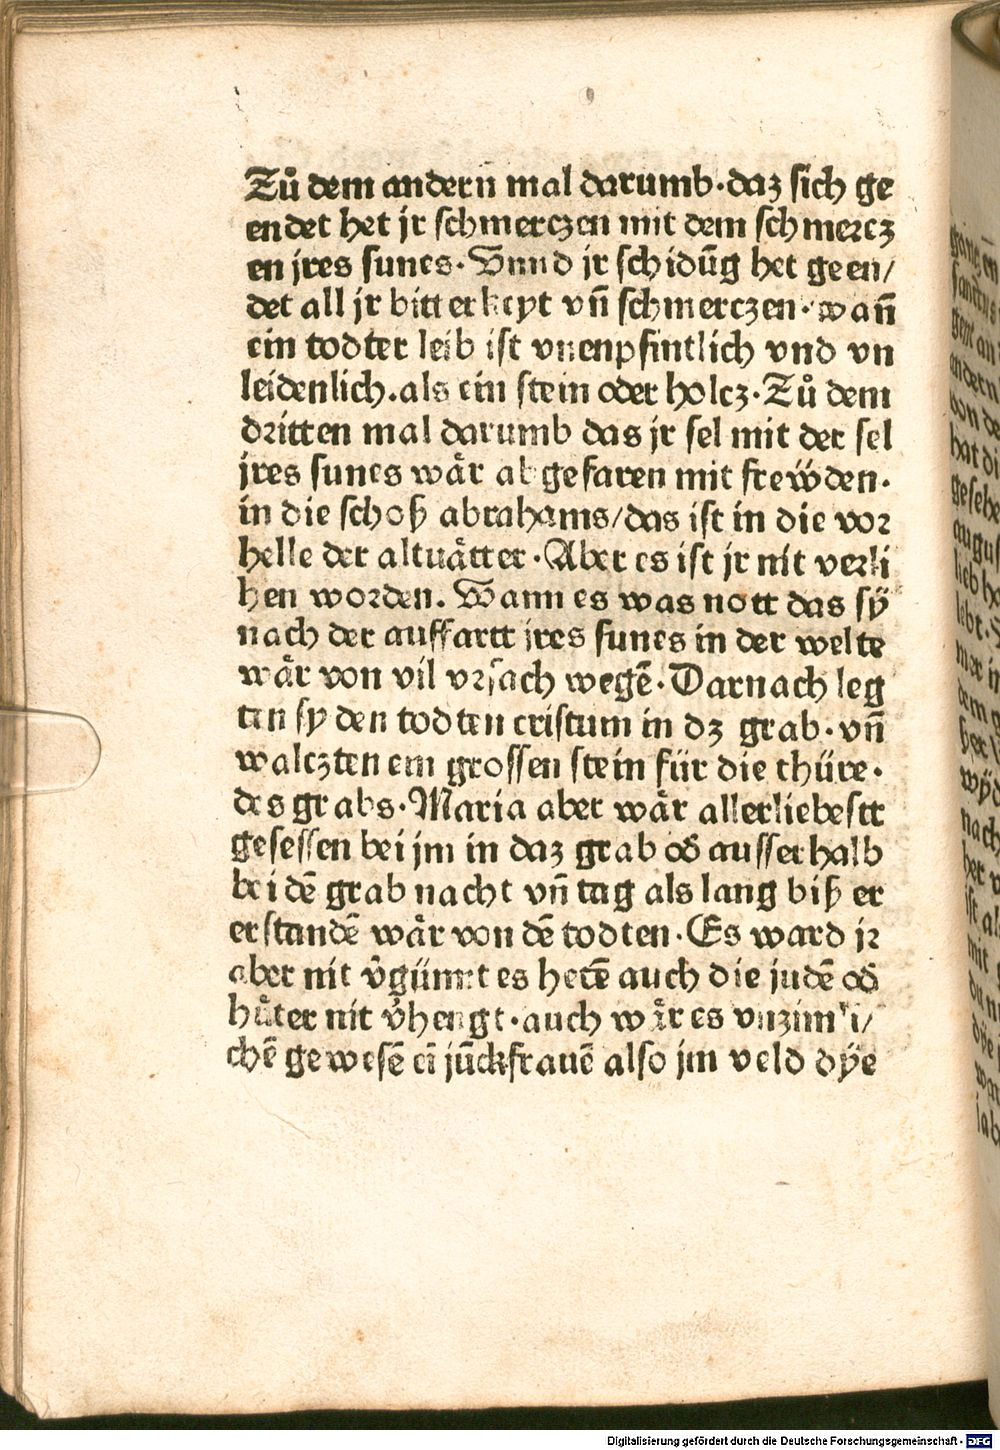 Zů dem andern mal darumb·daz sich ge
endet het jr schmerczen mit dem schmercz
en jres sunes·Vnnd jr schidūg het geen/
det all jr bitterkeyt vn̄ schmerczen·wan̄
ein todter leib ist vnenpfintlich vnd vn
leidenlich.als ein stein oder holcz·Zů dem
dritten mal darumb das jr sel mit der sel
jres sunes wår abgefaren mit frewden·
in die schoß abrahams/das ist in die vor
helle der altuåtter·Aber es ist jr nit verli
hen worden. Wann es was nott das sÿ
nach der auffartt jres sunes in der welte
wår von vil vrsach wegē·Darnach leg
ten sy den todten cristum in dz grab·vn̄
walczten ein grossen stein für die thüre·
des grabs·Maria aber wår allerliebestt
gesessen bei jm in daz grab od̕ ausserhalb
bei dē grab nacht vn̄ tag als lang biß er
erstandē wår von dē todten·Es ward jr
aber nit v̕günnt es hetē auch die judē od̕
hůter nit v̕hengt·auch wår es vnzimli/
chē gewesē ei jūckfrauē also jm veld dÿe
Digitalisierung gefördert durch die Deutsche Forschungsgemeinschaft - DFG